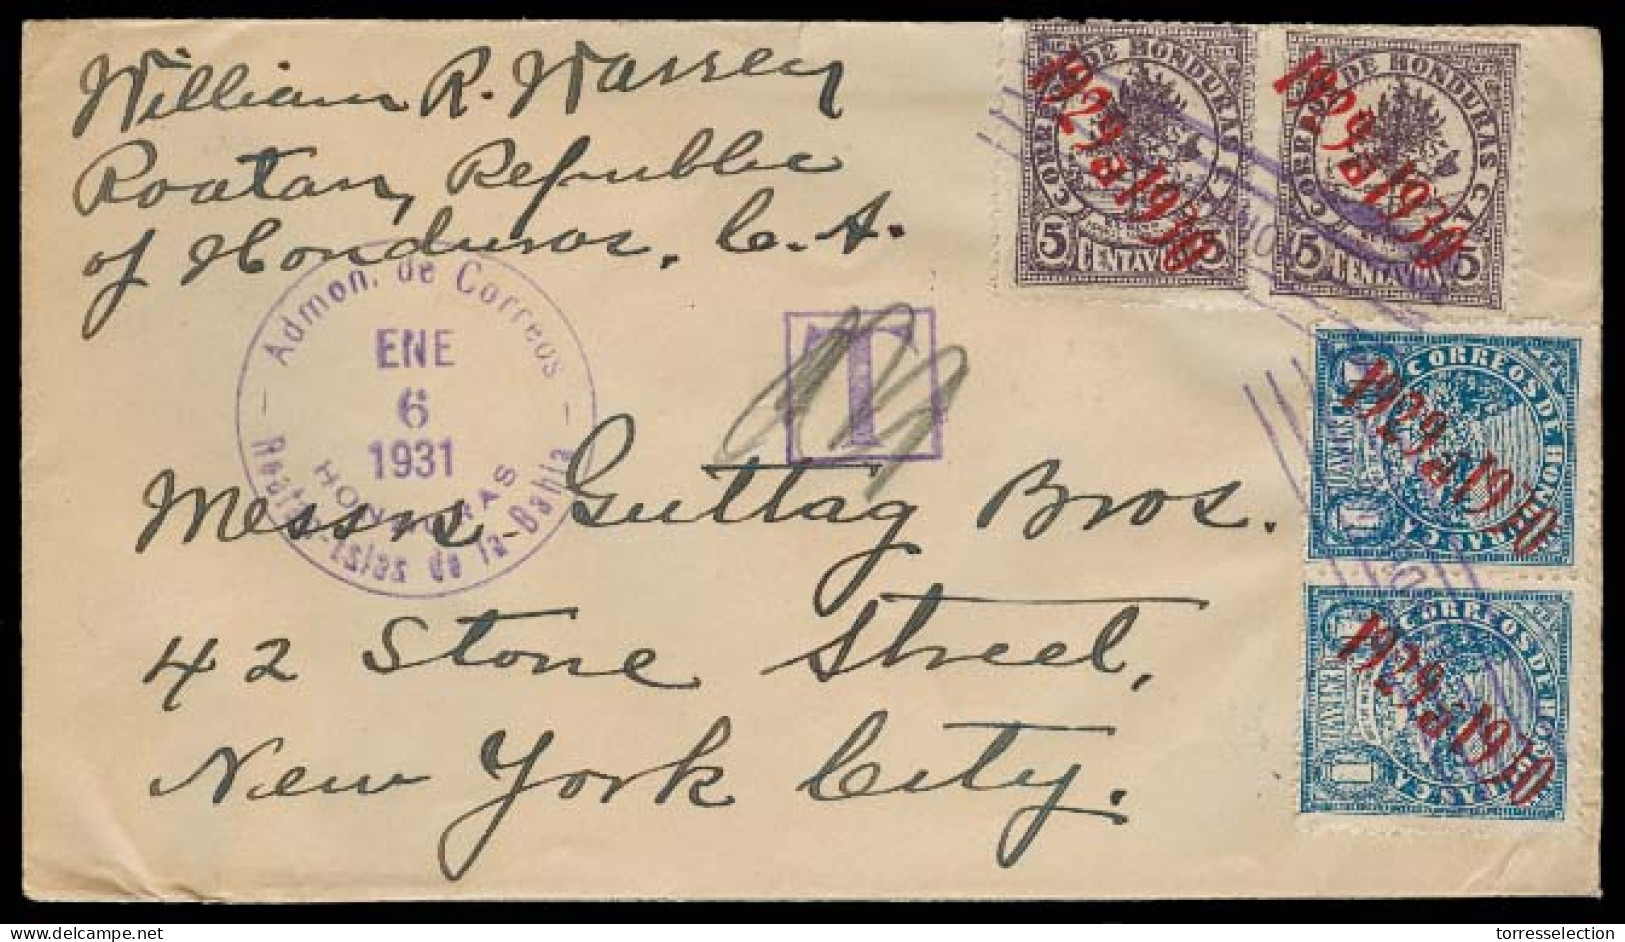 William R. Warren
Roatan, Republic
of Honduras, C.A.
Admon. de Correos
ENE
6
1931
HONDURAS
Roatan-Islas de la-Bahia
T
Messrs. Guttag Bros.
42 Stone Street,
New York City.
CORREOS DE HONDURAS C.A.
1929 a 1930
5 CENTAVOS 5
CORREOS DE HONDURAS C.A.
1929 a 1930
5 CENTAVOS 5
CORREOS DE HONDURAS C.A.
1929 a 1930
1 UN CENTAVO 1
CORREOS DE HONDURAS C.A.
1929 a 1930
1 UN CENTAVO 1
delcampe.net
torresselection